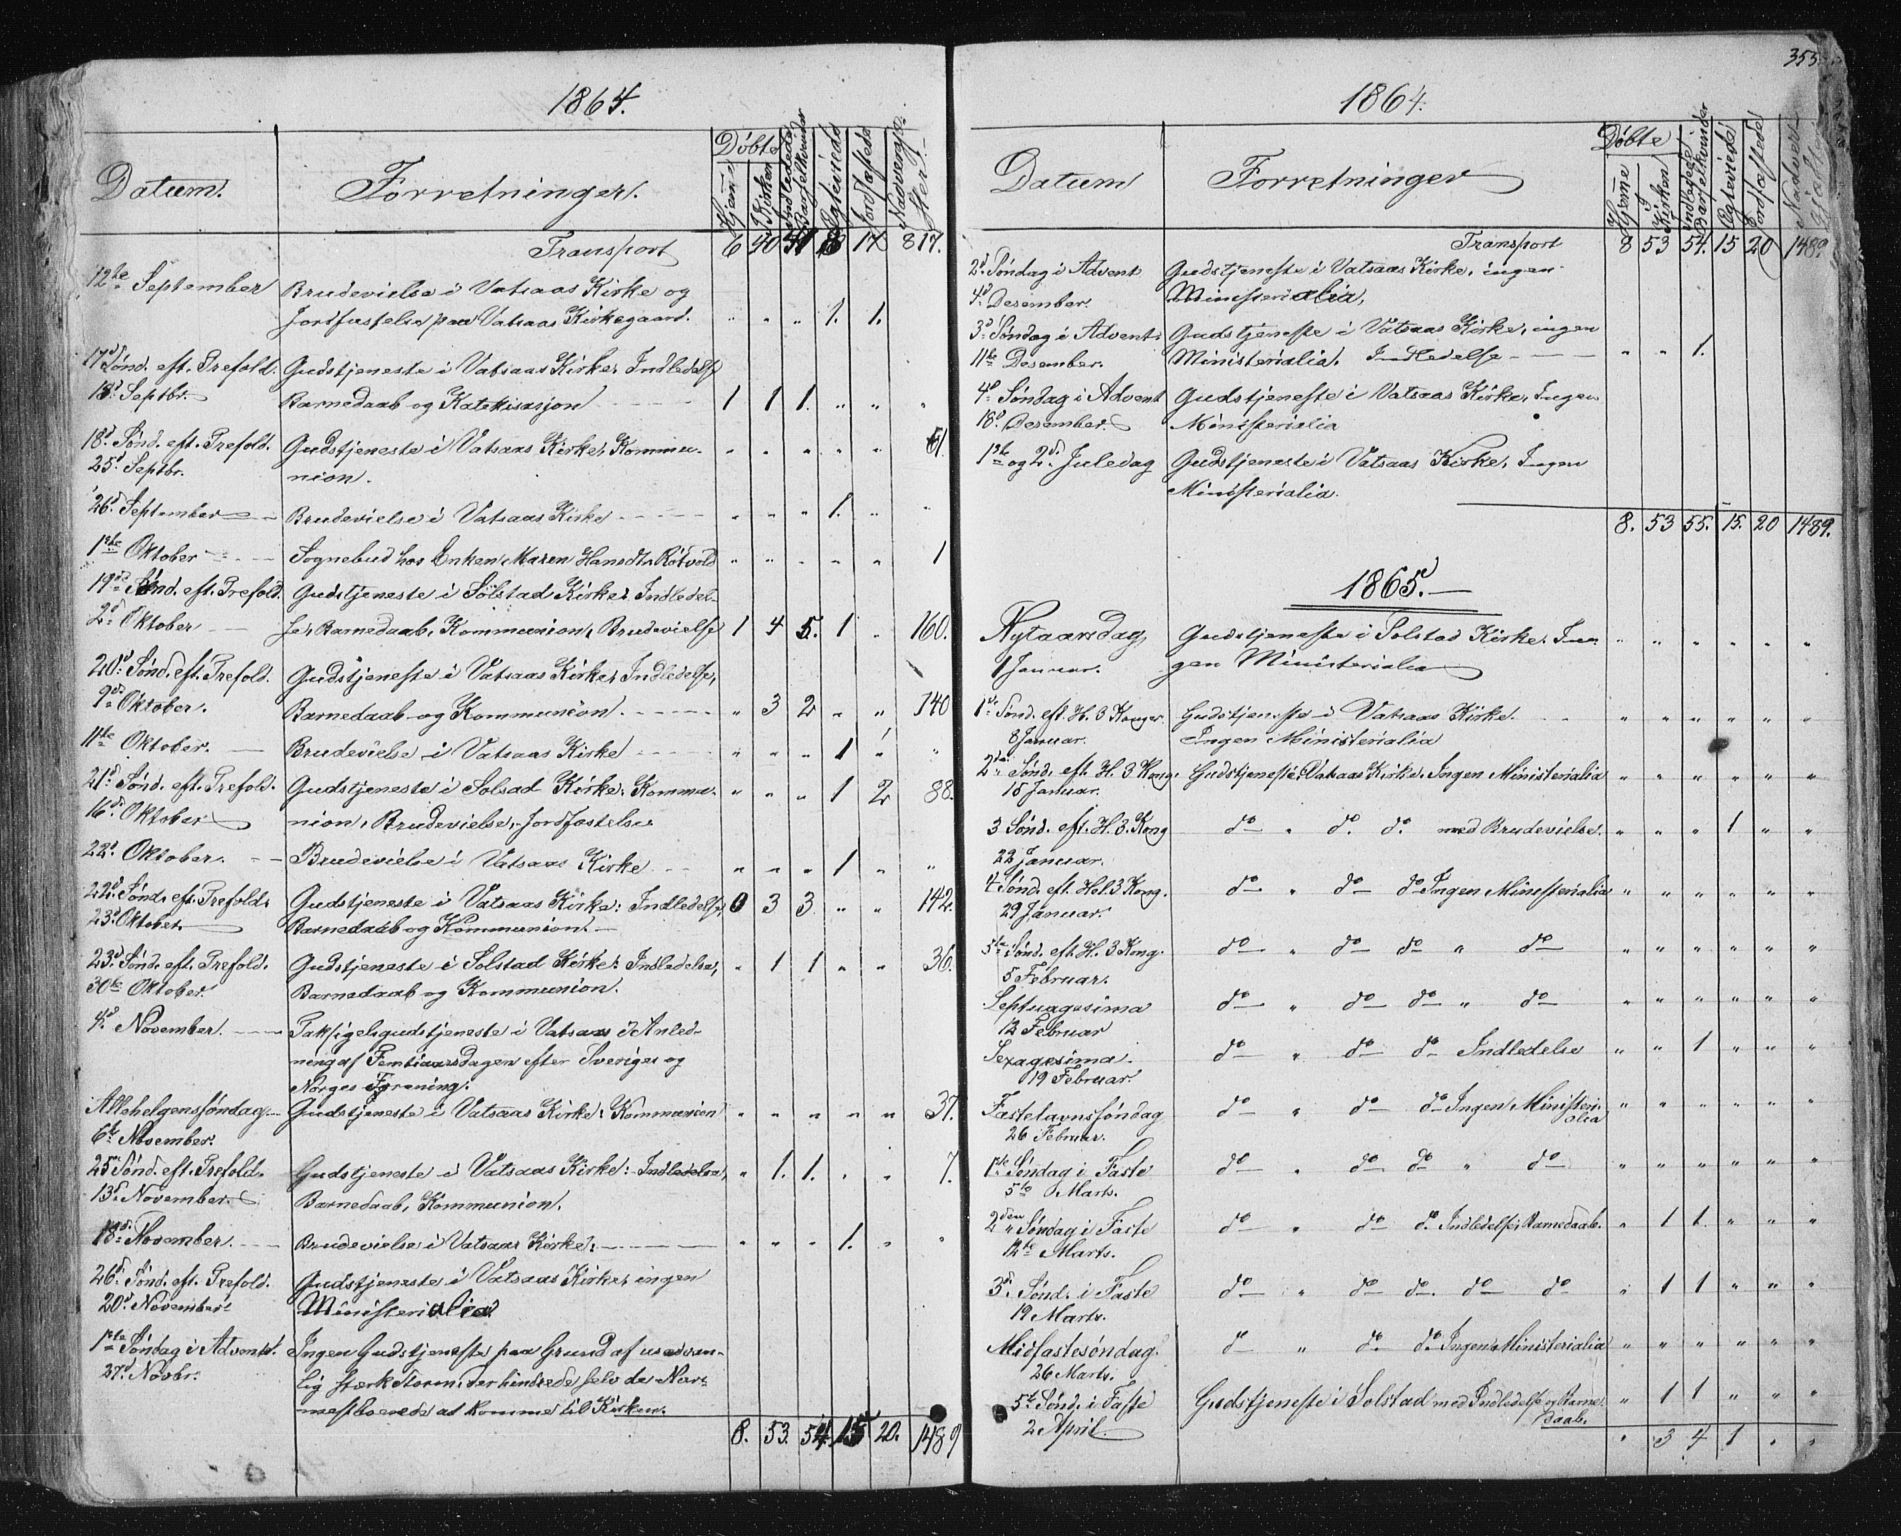 1864.
Døbte
Datum. Forretninger. Hjemme I Kirken Indledede Barselkvinder Ægteviede Jordfæstede Nadvergjester.
Transport 6 40 41 8 17 817.
12te September Brudevielse i Vatsaas Kirke og
Jordfæstelse paa Vatsaas Kirkegaard. " " " 1. 1.
17d Sønd. eft. Trefold. Gudstjeneste i Vatsaas Kirke, Indledelse
18d Septbr. Barnedaab og Katekisasjon 1 1 1. " " "
18d Sønd. eft. Trefold. Gudstjeneste i Vatsaas Kirke, Kommu- " " " " " 61.
25d Septbr. nion.
26d September Brudevielse i Vatsaas Kirke " " " 1. " "
1ste Oktober Sognebud hos Enken Maren Hansdtr Røtvold " " " " " 1
19de Sønd. eft. Trefold. Gudstjeneste i Solstad Kirke: Indledel-
2d Oktober se, Barnedaab, Kommunion, Brudevielse 1 4 5. 1 " 160.
20d Sønd. eft. Trefold. Gudstjeneste i Vatsaas Kirke, Indledelse,
9de Oktober. Barnedaab og Kommunion. " 3 2 " " 140
11te Oktober. Brudevielse i Vatsaas Kirke " " " 1 " "
21d Sønd. eft. Trefold. Gudstjeneste i Solsad Kirke: Kommu- " " " 1 2 88.
16de Oktober nion, Brudevielse, Jordfæstelse
22d Oktober. Brudevielse i Vatsaas Kirke " " " 1 " "
22d Sønd. eft. Trefold. Gudstjeneste i Vatsaas Kirke: Indledelse, 0 3 3 " " 142.
23d Oktober. Barnedaab og Kommunion.
23d Sønd. eft. Trefold. Gudstjeneste i Solstad Kirke: Indledelse, " 1 1 " " 36.
30te Oktober. Barnedaab og Kommunion.
4d November. Taksigelsgudstjeneste i Vatsaas i Anled-
ning af Femtiaarsdagen efter Sveriges og
Norges Forening.
Allehelgensøndag Gudstjeneste i Vatsaas Kirke: Kommunion " " " " " 37.
6te November.
25de Sønd. eft. Trefold. Gudstjeneste i Vatsaas Kirke: Indledelse, " 1. 1. " " 7.
13de November. Barnedaab, Kommunion.
18de November. Brudevielse i Vatsaas Kirke: " " " 1. " "
26d Sønd. eft. Trefold. Gudstjeneste i Vatsaas Kirke, ingen
20d November. Ministerialia
1ste Søndag i Advent. Ingen Gudstjeneste paa Grund af usædvan-
27d Novbr. lig stærk Storm, der hindrede selv de Nær-
mestboende at komme til Kirken.
8. 53. 54. 15 20. 1489
353
1864.
Døbte
Datum Forretninger Hjemme I Kirken Indledede Barselkvinder Ægteviede Jordfæstede
Transport 8 53 54. 15 20 1489.
2d Søndag i Advent Gudstjeneste i Vatsaas Kirke, ingen
4d Desember. Ministerialia,
3d Søndag i Advent Gudstjeneste i Vatsaas Kirke, ingen
11te Desember. Ministerialia. Indledelse " " 1.
4d Søndag i Advent Gudstjeneste i Vatsaas Kirke, Ingen
18d Desember. Ministerialia
1ste og 2d Juledag Gudstjeneste i Vatsaas Kirke, Ingen
Ministerialia.
8. 53 55. 15. 20 1489.
1865.
Nytaarsdag, Gudstjeneste i Solstad Kirke, In- " " " " " "
1 Januar. gen Ministerialia
1ste Sønd. eft. H. 3 Konger. Gudstjeneste i Vatsaas Kirke. " " " " " "
8 Januar. Ingen Ministerialia
2den Sønd. eft. H. 3 Kong. Gudstjeneste i Vatsaas Kirke. Ingen Ministerialia " " " " " "
15 Januar.
3 Sønd. eft. H. 3. Kong do " do do med Brudevielse. " " " 1 " "
22 Januar.
4 Sønd. eft. Hel. 3 Kong. do " do do Ingen Ministerialia " " " " " "
29 Januar.
5te Sønd. eft H. 3 Kong. do " do do " do " " " " " "
5 Februar.
Septuagesima do " do do " do " " " " " "
12 Februar
Sexagesima. do " do do Indledelse " " 1 " " "
19 Februar.
Fastelavnsøndag do " do do Ingen Ministeri- " " " " " "
26 Februar. alia
1ste Søndag i Faste do " do do " do " " " " " "
5te Marts.
2den Søndag i Faste do " do do Indledelse, Barnedaab. " 1 1. " " "
12te Marts.
3d Sønd. i Faste do " do do do do " 1 1 " " "
19 Marts.
Midfastesøndag. do " do do Ingen Ministerialia " " " " " "
26 Marts.
5te Sønd. i Faste Gudstjeneste i Solstad med Indledelse og Barne- " 1 1 " " "
2 April. Daab.
" 3 4 1 " "